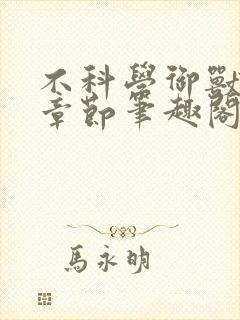 不科學御獸
章節筆趣閣
馬永明